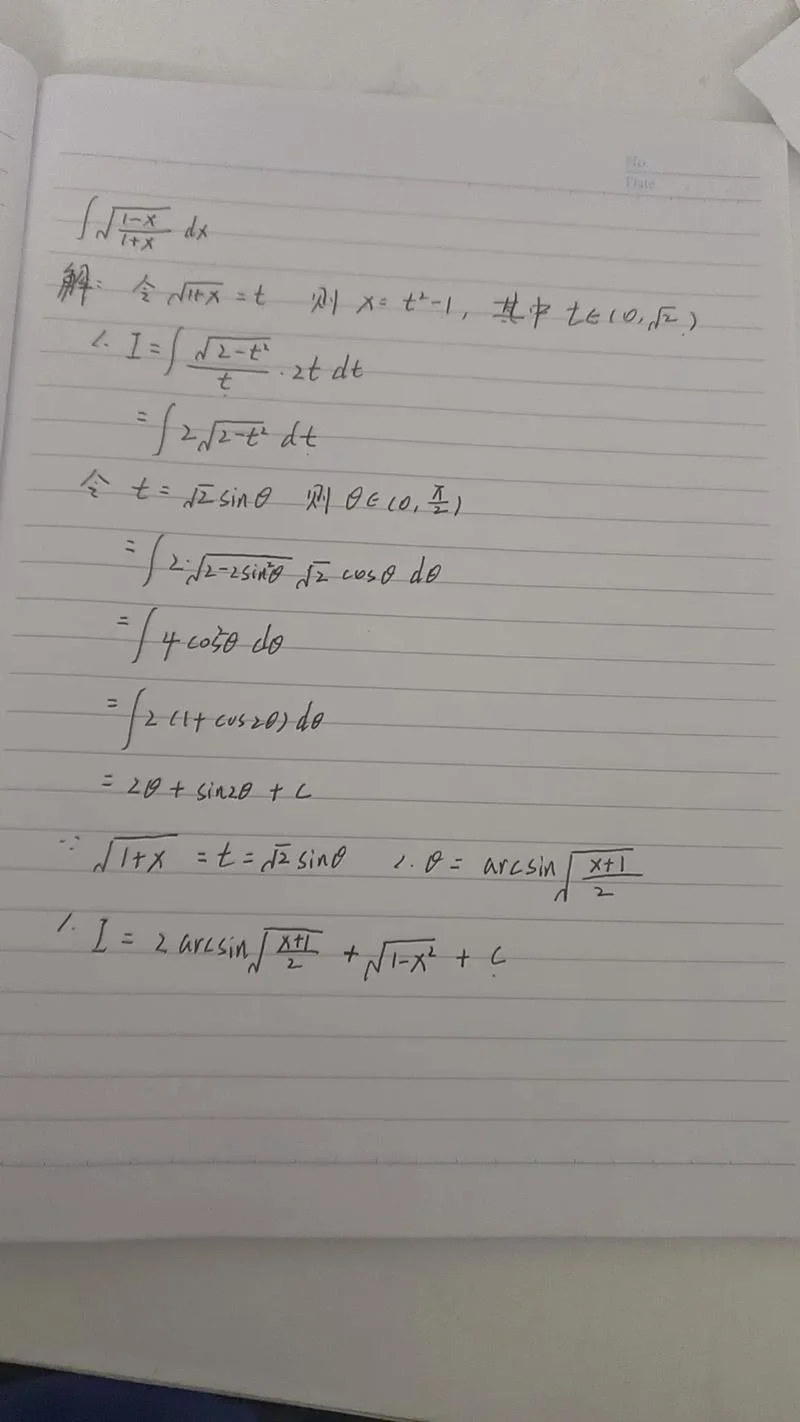 No.
Date
∫√((1-x)/(1+x)) dx
解: 令 √(1+x) = t 则 x = t²-1, 其中 t∈(0,√2)
∴ I = ∫ (√(2-t²))/t · 2t dt
= ∫ 2√(2-t²) dt
令 t = √2 sinθ 则 θ∈(0, π/2)
= ∫ 2·√(2-2sin²θ) √2 cosθ dθ
= ∫ 4cos²θ dθ
= ∫ 2(1+cos2θ) dθ
= 2θ + sin2θ + C
∵ √(1+x) = t = √2 sinθ ∴ θ = arcsin√((x+1)/2)
∴ I = 2 arcsin√((x+1)/2) + √(1-x²) + C